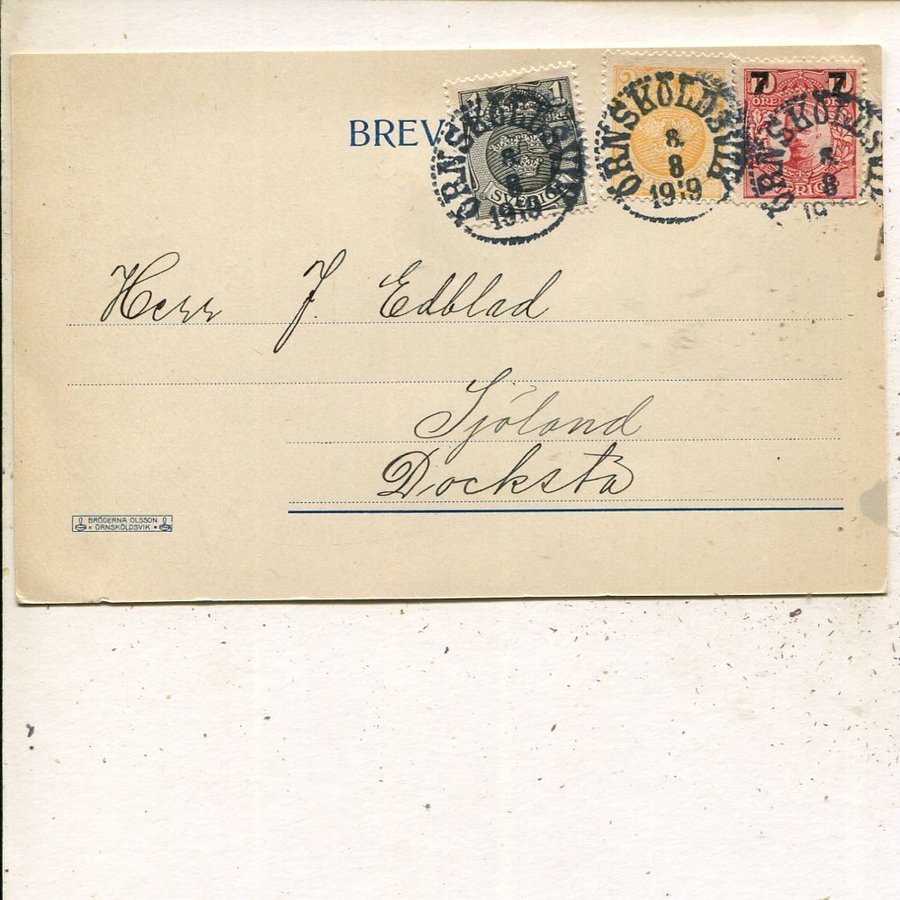 BREV
1
SVERIGE
ÖRNSKÖLDSVIK
8
8
1919
ÖRNSKÖLDSVIK
8
8
1919
7 7
ÖRE ÖRE
SVERIGE
ÖRNSKÖLDSVIK
8
8
Herr J. Edblad
Sjöland
Docksta
BRÖDERNA OLSSON
• ÖRNSKÖLDSVIK •